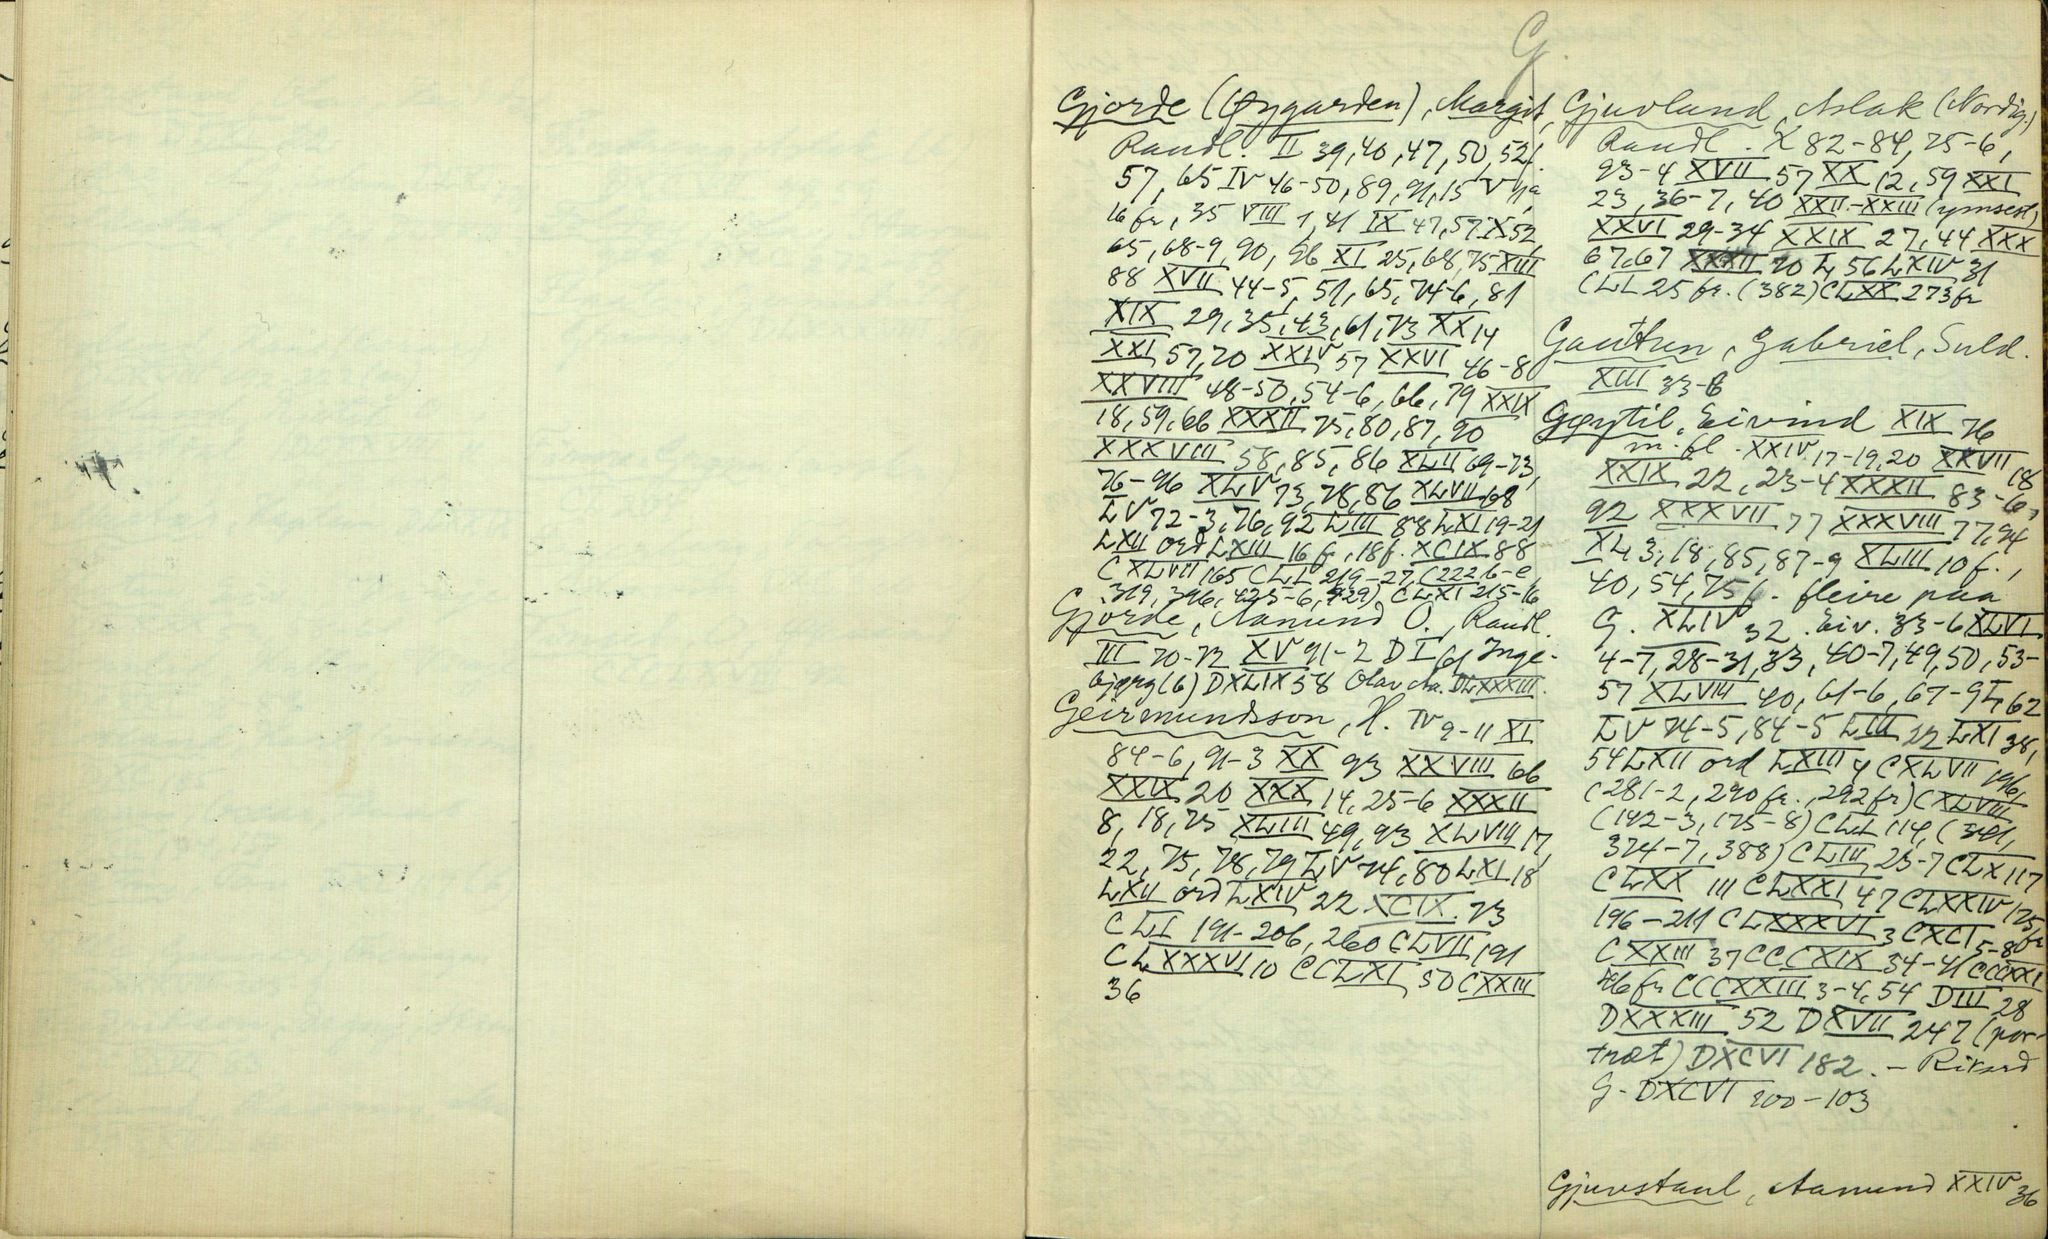 G.
Gjorde (Øygarden), Margit,
Raudl. II 39, 40, 47, 50, 52f.
57, 65 IV 46-50, 89, 91, 15 V
16 fr, 35 VIII 1, 41 IX 47, 57 X 52
65, 68-9, 90, 96 XI 25, 68, 75 XIII
88 XVII 44-5, 51, 65, 74-6, 81
XIX 29, 35, 43, 61, 73 XX 14
XXI 57, 70 XXIV 57 XXVI 46-8
XXVIII 48-50, 54-6, 66, 79 XXIX
18, 59, 66 XXXII 75, 80, 87, 90
XXXVIII 58, 85, 86 XLII 69-73,
76-96 XLV 73, 78, 86 XLVII 68
LV 72-3, 76, 92 LIII 88 LXI 19-21
LXII ord LXIII 16 fr, 18f. XCIX 88
CXLVII 165 CLI 219-27, (222 b-e,
319, 396, 425-6, 429) CLXI 215-16
Gjorde, Aamund O., Raudl.
III 70-72 XV 91-2 DI 61 Inge-
bjørg (6) DXLIX 58 Olav Aa. DLXXXIII.
Geirmundsson, H. IV 9-11 XI
84-6, 91-3 XX 93 XXVIII 66
XXIX 20 XXX 14, 25-6 XXXII
8, 18, 75 XLIII 49, 93 XLVIII 17,
22, 75, 78, 79 LV 74, 80 LXI 18
LXII ord LXIV 22 XCIX 73
CLI 191-206, 260 CLVII 191
CLXXXVI 10 CCLXI 50 CXXIII
36
Gjuvland, Aslak (Nordig.)
Raudl. X 82-84, 75-6,
93-4 XVII 57 XX 12, 59 XXI
23, 36-7, 40 XXII-XXIII (ymsest)
XXVI 29-34 XXIX 27, 44 XXX
67, 67 XXXII 70 L 56 LXIV 31
CLI 25 fr. (382) CLXX 273 fr
Gauthun, Gabriel, Suld.
XIII 33-8
Gøytil, Eivind XIX 76
m. fl. XXIV 17-19, 20 XXVII 18
XXIX 22, 23-4 XXXII 83-6,
92 XXXVII 77 XXXVIII 77, 94
XL 3, 18, 85, 87-9 XLIII 10 f.,
40, 54, 75 f. fleire paa
G. XLIV 32. Eiv. 33-6 XLVI
4-7, 28-31, 33, 40-7, 49, 50, 53-
57 XLVIII 40, 61-6, 67-9 L 62
LV 74-5, 84-5 LIII 22 LXI 38,
54 LXII ord LXIII 4 CXLVII 196,
(281-2, 290 fr., 292 fr) CXLVIII
(142-3, 175-8) CLI 114, (341,
374-7, 388) CLIII 25-7 CLX 117
CLXX 111 CLXXI 47 CLXXIV 175 fr
196-211 CLXXXVI 3 CXCI 5-8
CXXIII 37 CCCXIX 34-41 CCCXXI
46 fr CCCXXIII 3-4, 54 DIII 28
DXXXIII 52 DXVII 247 (por-
træt) DXCVI 182. - Rikard
G. DXCVI 100-103
Gjuvstaul, Aamund XXIV 36